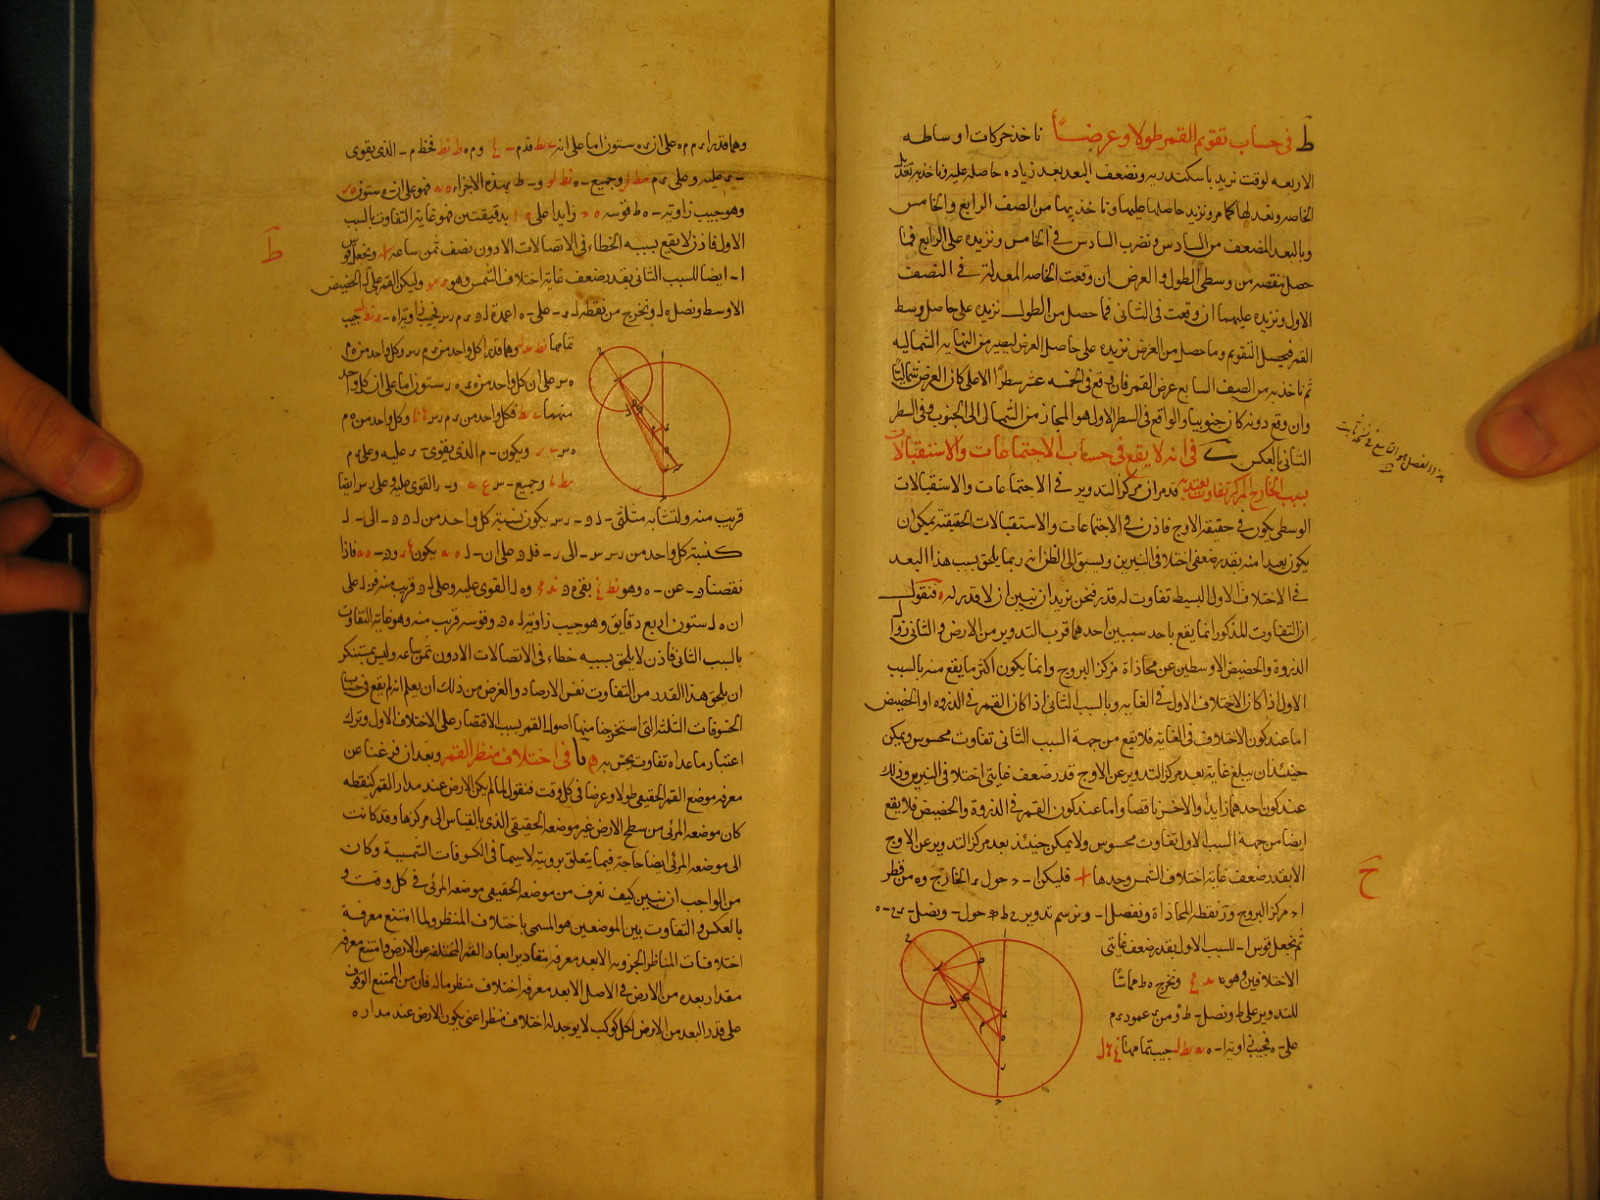 ط في حساب تقويم القمر طولا وعرضاً ناخذ حركات اوساطه
الاربعه لوقت نريد باسكندريه ونضعف البعد بعد زياده حاصله عليه وناخذ به تعديل
الخاصه ونعدلها كما مر ونزيد حاصلها عليها وناخذ بها من الصف الرابع والخامس
وبالبعد المضعف من السادس ونضرب السادس في الخامس ونزيده على الرابع فما
حصل ننقصه من وسطى الطول والعرض ان وقعت الخاصه المعدلة في النصف
الاول ونزيده عليهما ان وقعت في الثاني فما حصل من الطول نزيده على حاصل وسط
القمر فيحصل التقويم وما حصل من العرض نزيده على حاصل العرض ليصير من النهايه الشماليه
ثم ناخذ به من الصف السابع عرض القمر فان وقع في الخمسه عشر سطرا الاعلى كان العرض شماليا
وان وقع دونه كان جنوبيا والواقع في السطر الاول هو المجاز من الشمال الى الجنوب وفي السطر
الثاني بالعكس ى في انه لا يقع في حساب الاجتماعات والاستقبالات
بسبب الخارج المركز تفاوت يعتد به قد مر ان مركز التدوير في الاجتماعات والاستقبالات
الوسطى يكون في حقيقة الاوج فاذن في الاجتماعات والاستقبالات الحقيقية يمكن ان
يكون بعيدا منه بقدر ضعفي اختلافي النيرين ويسبق الى الظن انه ربما يلحق بسبب هذا البعد
في الاختلاف الاول البسيط تفاوت له قدر فنحن نريد ان نبين ان لا قدر له فنقول
ان التفاوت المذكور انما يقع باحد سببين احدهما قرب التدوير من الارض والثاني زوال
الذروة والحضيض الاوسطين عن محاذاة مركز البروج وانما يكون اكثر ما يقع منه بالسبب
الاول اذا كان الاختلاف الاول في الغايه وبالسبب الثاني اذا كان القمر في الذروه او الحضيض
اما عند كون الاختلاف في الغاية فلا يقع من جهة السبب الثاني تفاوت محسوس ويمكن
حينئذ ان يبلغ غاية بعد مركز التدوير عن الاوج قدر ضعف غايتي اختلافي النيرين وذلك
عند كون احدهما زايدا والاخر ناقصا واما عند كون القمر في الذروة والحضيض فلا يقع
ايضا من جهة السبب الاول تفاوت محسوس ولا يمكن حينئذ بعد مركز التدوير عن الاوج
الا بقدر ضعف غاية اختلاف الشمس وحدها فليكن ا ب ح حول د الخارج و ه من قطر
ا ح مركز البروج و ر نقطه المحاذاة ونفصل ا ب ونرسم تدوير ح ط حول ب ونصل
ثم نجعل قوس ا ب للسبب الاول بقدر ضعف غايتي
الاختلافين وهو ونخرج ه ط مماسا
للتدوير على ط ونصل ب ط ومن د عمود د م
على ب ه فجيب زاوية جيب تمامها
هذا الفصل هو التاسع في نسخة ثابت
ح
وهما قدرا د م م ه على ان د ه ستون اما على انه قدم ب فخط م ب الذي يقوى
وجميع ب ه و ب ط بهذه الاجزاء فهو على ان ب ه ستون
وهو جيب زاوية ب ه ط قوسه زايدا على بدقيقتين فهو غاية التفاوت بالسبب
الاول فاذن لا يقع بسببه الخطاء في الاتصالات الا دون نصف ثمن ساعه ونجعل قوس
ا ب ايضا للسبب الثاني بقدر ضعف غاية اختلاف الشمس وهو وليكن القمر على ل الحضيض
الاوسط ونصل ه ل ونخرج من نقطه ل د ر على ب ه اعمدة ل م ر س فجيب زاوية
تمامها وهما قدرا كل واحد من د م ر س وكل واحد من ه م
ه س على ان كل واحد من د ه ه ر ستون اما على ان كل واحد
منهما فكل واحد من د م ر س وكل واحد من ه م
ه س ويكون ب م الذي يقوى ب د عليه وعلى د م
وجميع ب س و ب ر القوى عليه وعلى ر س ايضا
قريب منه ولتشابه مثلثي يكون نسبة كل واحد من الى ب ل
كنسبة كل واحد من ر س س ب الى ر ب على ان يكون فاذا
نقصنا عن ب ه وهو بقي و ه ل القوى عليه وعلى قريب منه فهو على
ان ه ل ستون اربع دقايق وهو جيب زاوية وقوسه قريب منه وهو غاية التفاوت
بالسبب الثاني فاذن لا يلحق بسببه خطاء في الاتصالات الا دون ثمن ساعه وليس بمستنكر
ان يلحق هذا القدر من التفاوت نفس الارصاد والغرض من ذلك ان يعلم انه لم يقع في حساب
الخسوفات الثلثة التي استخرجنا منها اصول القمر بسبب الاقتصار على الاختلاف الاول وترك
اعتبار ما عداه تفاوت يحس به يا في اختلاف منظر القمر وبعد ان فرغنا عن
معرفه موضع القمر الحقيقي طولا وعرضا في كل وقت فنقول لما لم يكن الارض عند مدار القمر كنقطه
كان موضعه المرئي من سطح الارض غير موضعه الحقيقي الذي بالقياس الى مركزها وقد كانت
الى موضعه المرئي ايضا حاجة فيما يتعلق برويته لاسيما في الكسوفات الشمسية وكان
من الواجب ان نبين كيف نعرف من موضعه الحقيقي موضعه المرئي في كل وقت و
بالعكس والتفاوت بين الموضعين هو المسمى باختلاف المنظر ولما امتنع معرفة
اختلافات المناظر الجزويه الا بعد معرفه مقادير ابعاد القمر المختلفه عن الارض وامتنع معرفه
مقدار بعده من الارض في الاصل الا بعد معرفه اختلاف منظر ماله فان من الممتنع الوقوف
على قدر البعد من الارض لكل كوكب لا يوجد له اختلاف منظر اعني يكون الارض عند مداره
ط